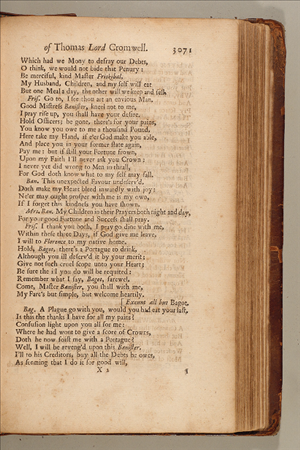 of Thomas Lord Cromwell. 3071
Which had we Mony to defray our Debts,
O think, we would not bide this Penury:
Be merciful, kind Master Friskibal,
My Husband, Children, and my self will eat
But one Meal a day, the other will we keep and sell
Fris. Go to, I see thou art an envious Man.
Good Mistress Banister, kneel not to me,
I pray rise up, you shall have your desire.
Hold Officers; be gone, there's for your pains,
You know you owe to me a thousand Pound,
Here take my Hand, if e'er God make you able,
And place you in your former state again,
Pay me: but if still your Fortune frown,
Upon my Faith I'll never ask you Crown:
I never yet did wrong to Men in thrall,
For God doth know what to my self may fall.
Ban. This unexpected Favour undeserv'd,
Doth make my Heart bleed inwardly with joy:
Ne'er may ought prosper with me is my own,
If I forget this kindness you have shown.
Mrs. Ban. My Children in their Prayers both night and day,
For your good Fortune and Success shall pray.
Fris. I thank you both, I pray go dine with me,
Within these three Days, if God give me leave,
I will to Florence to my native home.
Hold, Bagot, there's a Portague to drink,
Although you ill deserv'd it by your merit;
Give not such cruel scope unto your Heart;
Be sure the ill you do will be requited:
Remember what I say, Bagot, farewel.
Come, Master Banister, you shall with me,
My Fare's but simple, but welcome heartily.
[Exeunt all but Bagot.
Bag. A Plague go with you, would you had eat your last,
Is this the thanks I have for all my pains?
Confusion light upon you all for me:
Where he had wont to give a score of Crowns,
Doth he now foist me with a Portague?
Well, I will be reveng'd upon this Banister.
I'll to his Creditors, buy all the Debts he owes,
As seeming that I do it for good will,
X 2